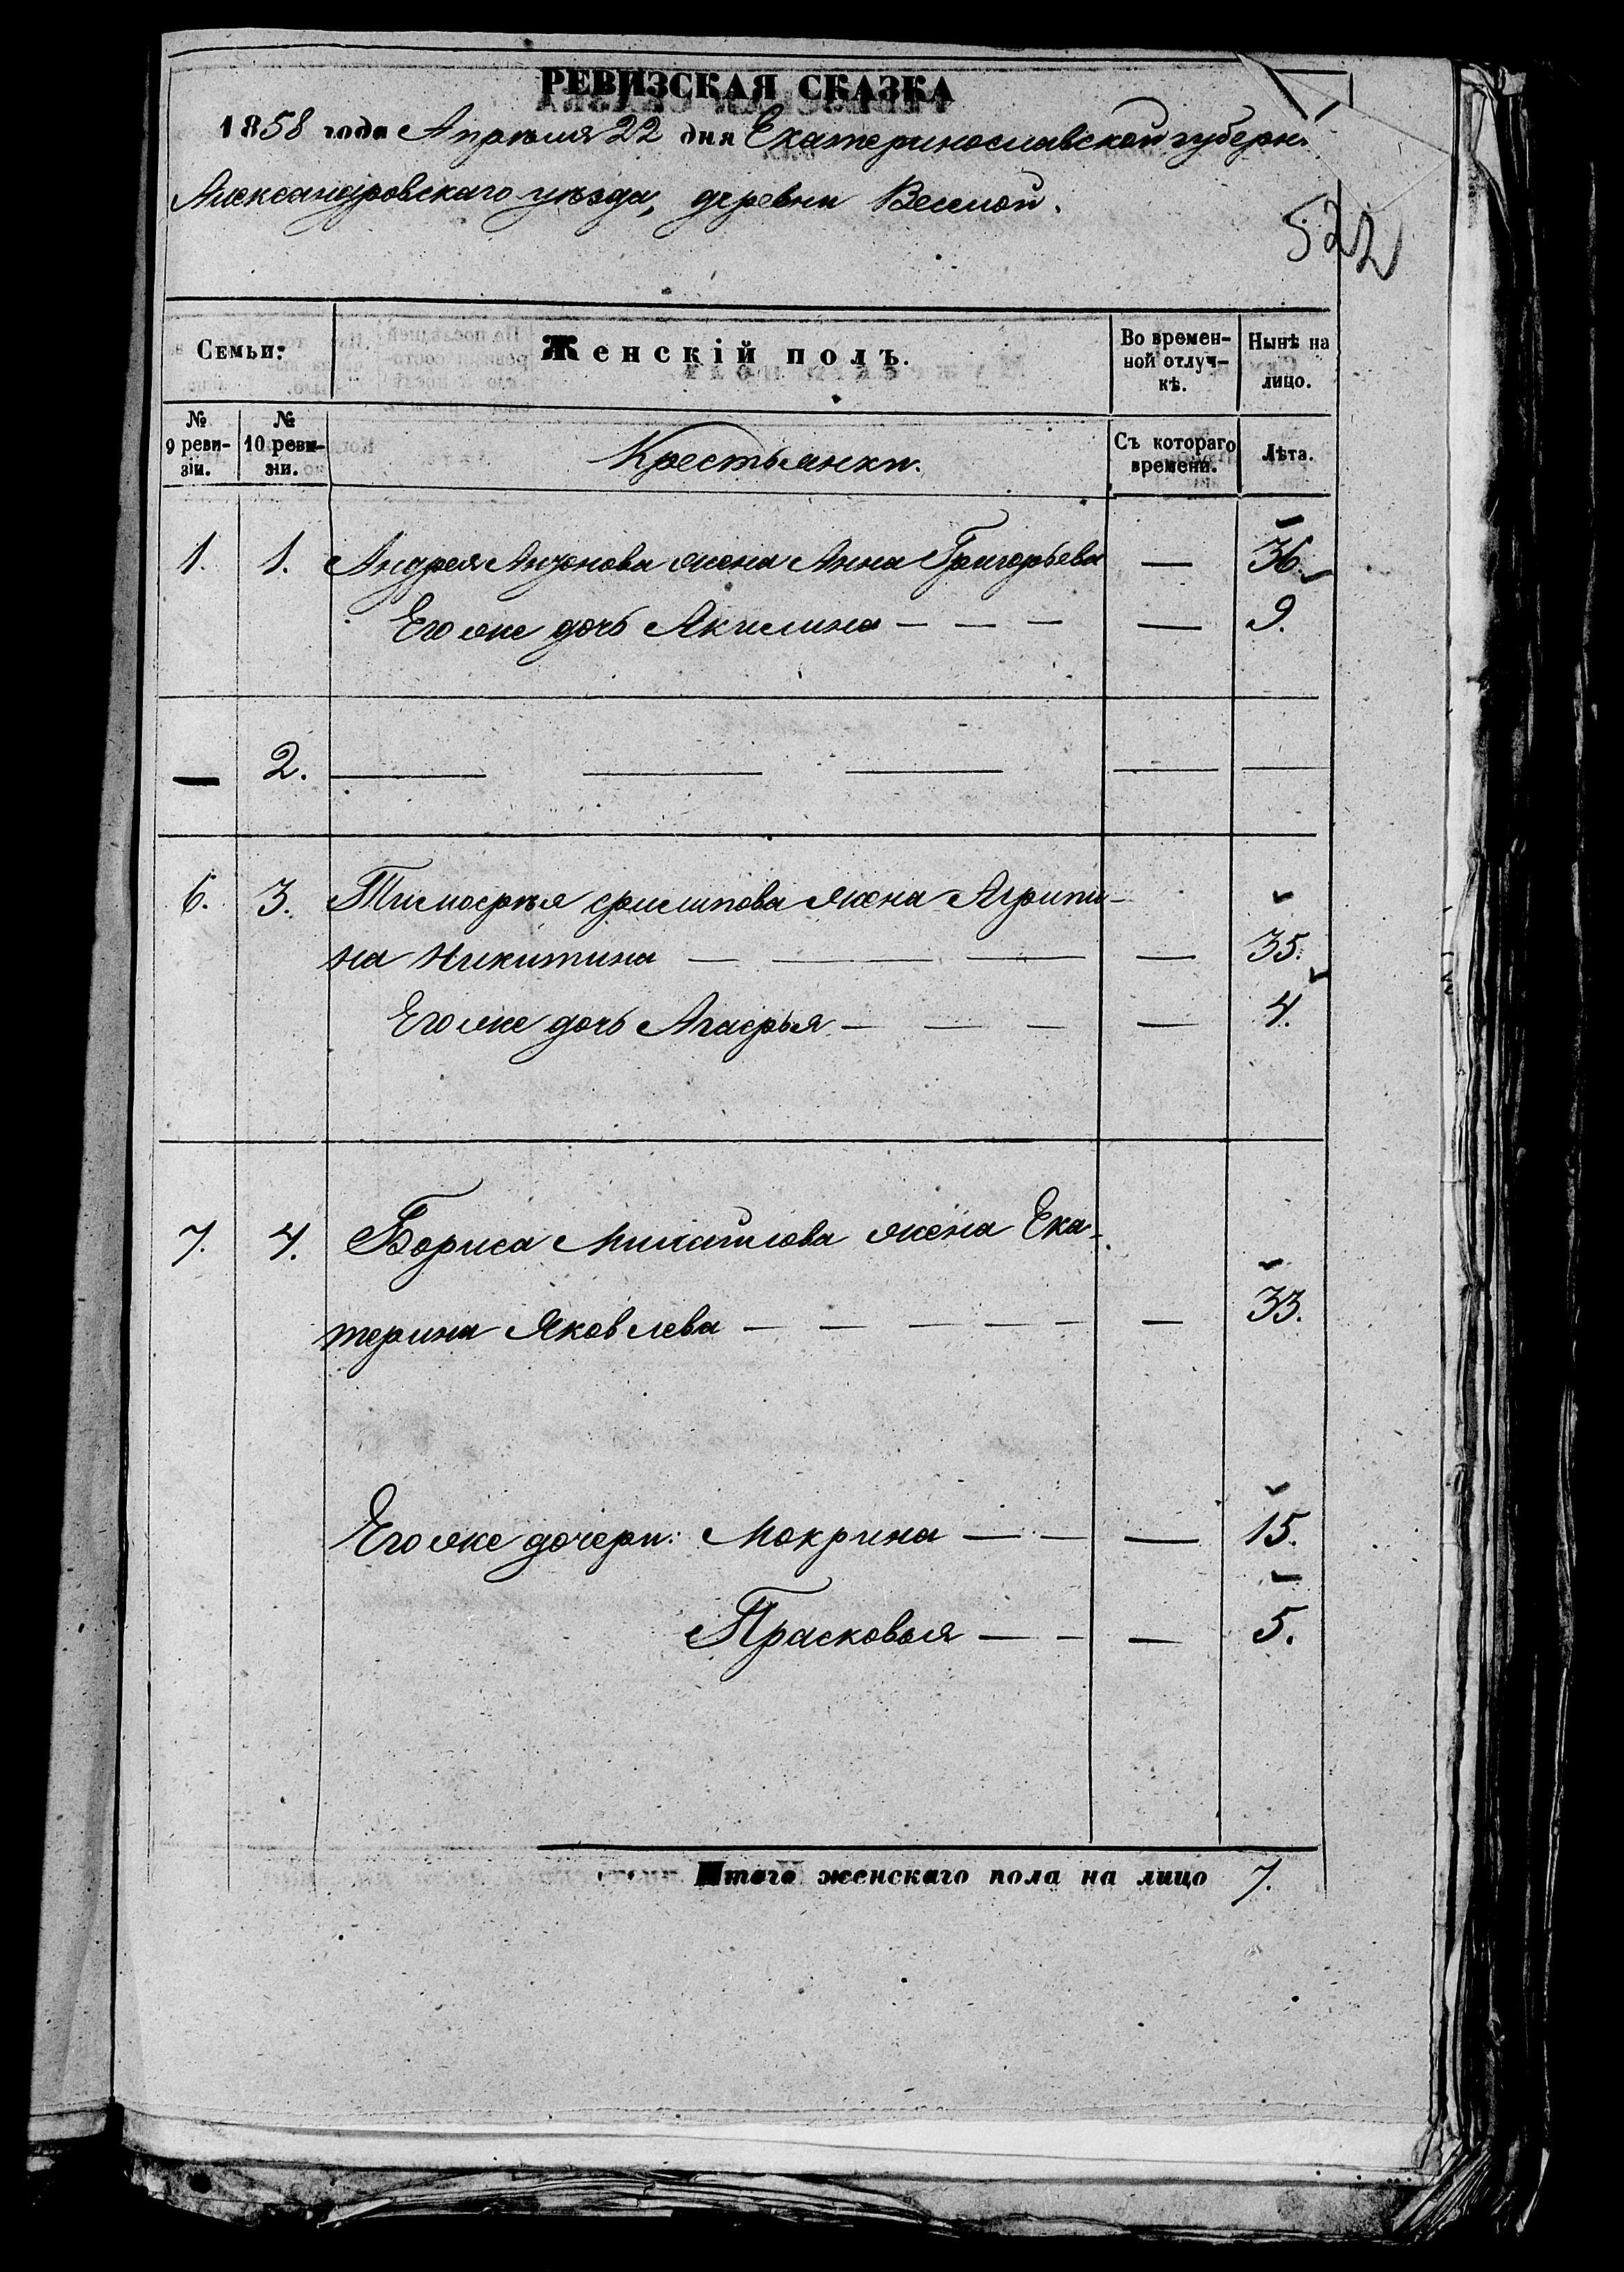 РЕВИЗСКАЯ СКАЗКА
1858 года Апрѣля 22 дня Екатеринославской губерн.
Александровскаго уѣзда, деревни Веселой.
522
Семьи:
Женскій полъ.
Во времен-
ной отлуч-
кѣ.
Нынѣ на
лицо.
№
9 реви-
зіи.
№
10 реви-
зіи.
Крестьянки.
Съ котораго
времени.
Лѣта.
1. 1. Андрея Антонова жена Анна Григорьева — 36.
Его же дочь Акилина — — — — 9.
— 2. — — — — —
6. 3. Тимофѣя Филипова жена Агрипи-
на Никитина — — — — 35.
Его же дочь Агафья — — — — 4.
7. 4. Бориса Михайлова жена Ека-
терина Яковлева — — — — — — 33.
Его же дочери: Мокрина — — — 15.
Прасковья — — — 5.
Итого женскаго пола на лицо 7.